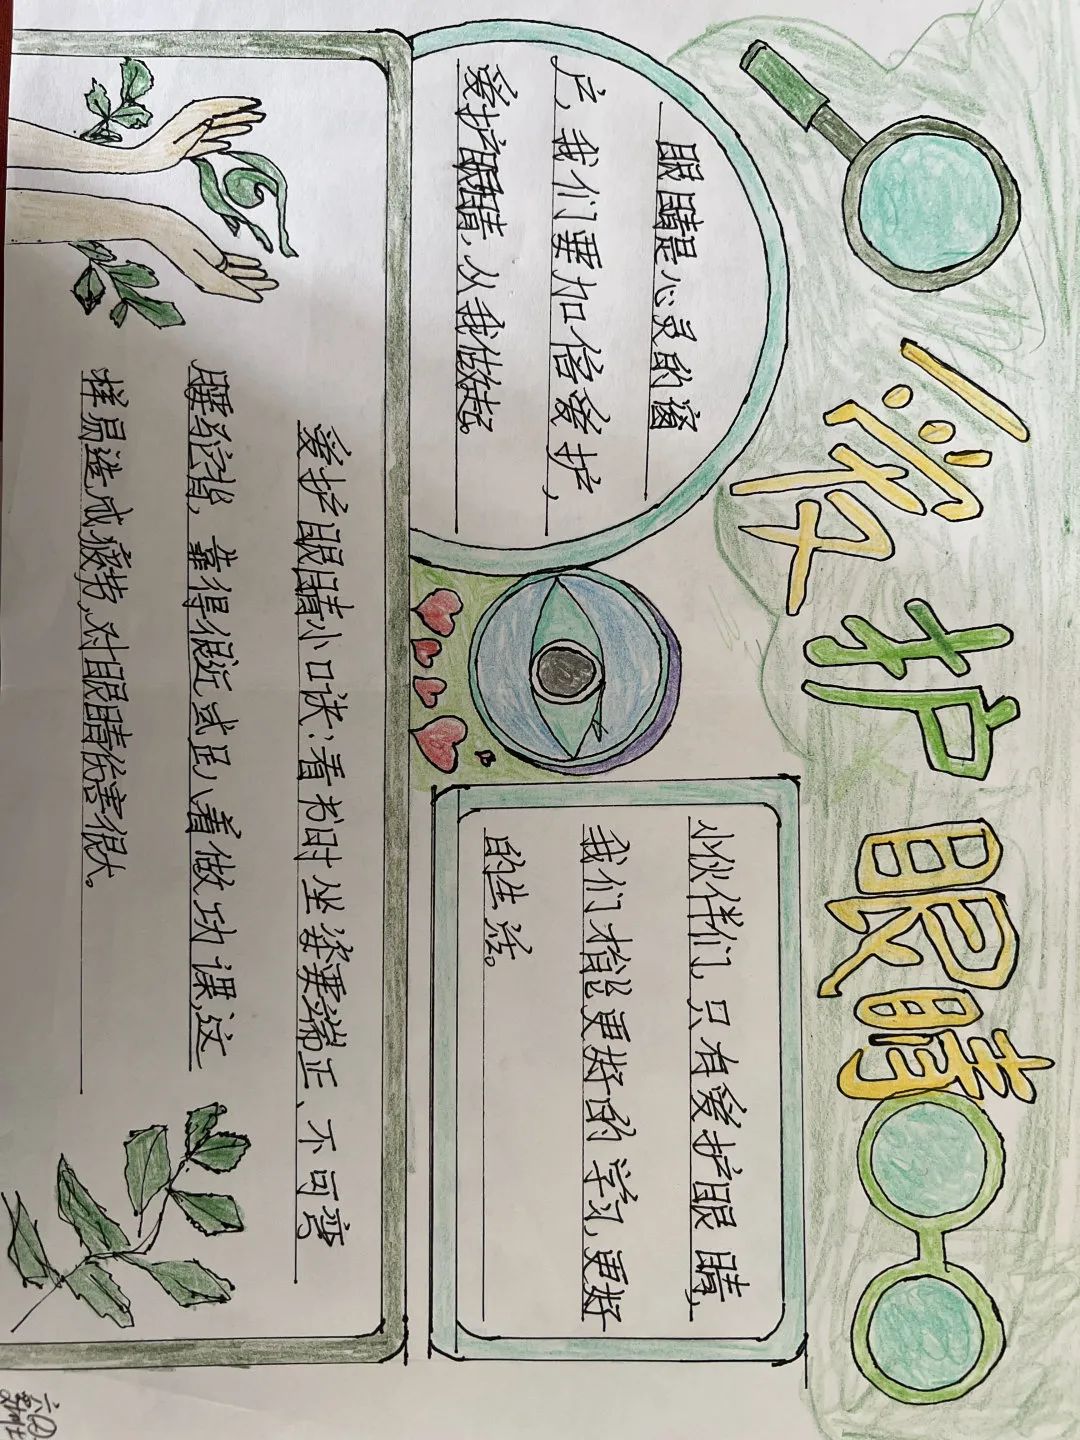 爱护眼睛
眼睛是心灵的窗
户,我们要加倍爱护,
爱护眼睛,从我做起。
小伙伴们,只有爱护眼睛,
我们才能更好的学习,更好
的生活。
爱护眼睛小口诀:看书时坐姿要端正、不可弯
腰驼背,靠得很近或是趴着做功课,这
样易造成疲劳,对眼睛伤害很大。